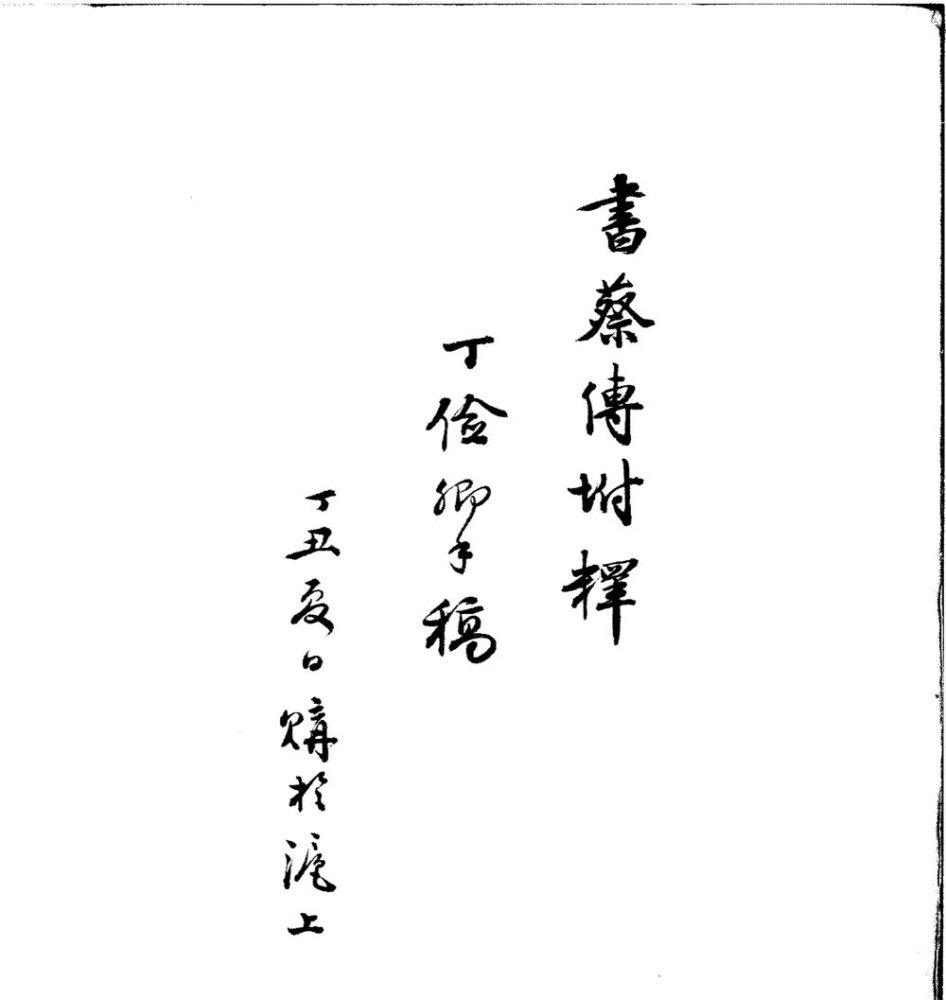 書蔡傳坿釋
丁俭卿手稿
丁丑夏日購於滬上